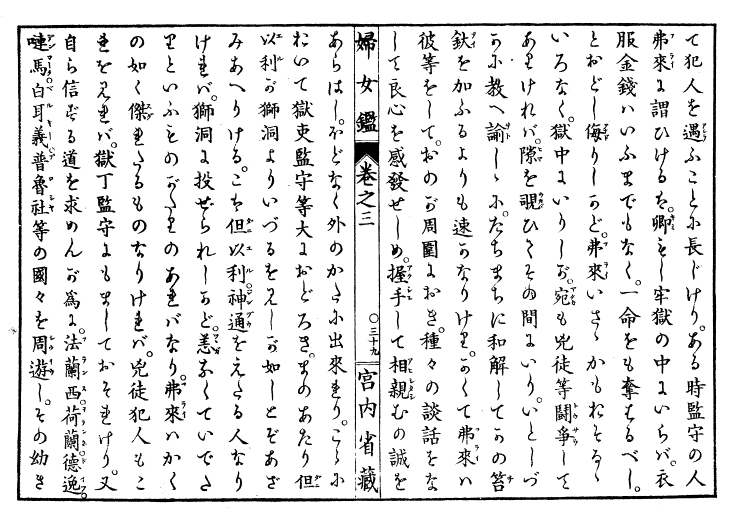 て犯人を遇ふことに長じけり。ある時監守の人
弗來に謂ひけるは。卿もし牢獄の中にいらば。衣
服金錢はいふまでもなく。一命をも奪はるべし。
とおどし侮りしかど。弗來いさゝかもおそるゝ
いろなく。獄中にいりしに。宛も兇徒等鬪爭して
ありければ。隙を覗ひてその間にいり。いとしづ
かに教へ諭しゝに。たちまちに和解してかの笞
鈇を加ふるよりも速かなりけり。かくて弗來は
彼等をして。おのが周圍におき。種々の談話をな
して良心を感發せしめ。握手して相親むの誠を
婦女鑑 卷之三 ○三十九 宮内省藏
あらはし。ほどなく外のかたに出來れり。こゝに
おいて獄吏監守等大におどろき。まのあたり但
以利が獅洞よりいづるをみしが如しとぞあざ
みあへりける。こは但以利神通をえたる人なり
ければ。獅洞に投ぜられしかど。恙なくていでた
りといふものがたりのあればなり。弗來はかく
の如く傑れたるものなりければ。兇徒犯人もこ
れをみれば。獄丁監守にもましておそれけり。又
自ら信ずる道を求めんが爲に。法蘭西荷蘭德逸。
嗹馬白耳義普魯社等の國々を周遊し。その幼き